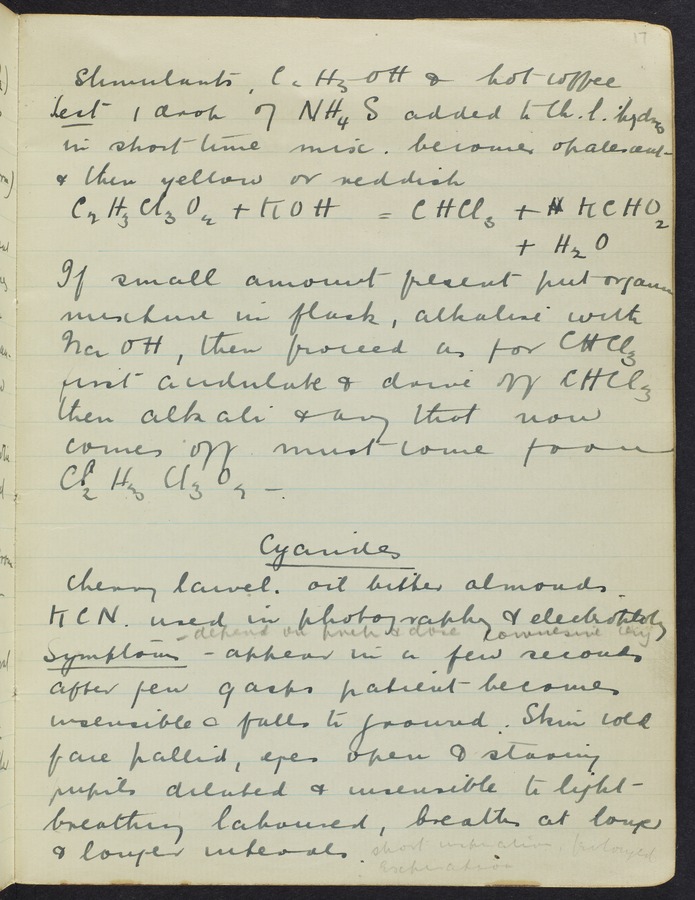 17
Stimulants, C2H5OH & hot coffee
Test 1 drop of NH4S added to Ch. l. hydras
in short time mix. becomes opalescent
& then yellow or reddish
C2H3Cl3O2 + KOH = CHCl3 + KCHO2
+ H2O
If small amount present put organic
mixture in flask, alkalise with
NaOH, then proceed as for CHCl3
first acidulate & drive off CHCl3
then alkali & any that now
comes off must come from
C2H3Cl3O2 -
Cyanides
Cherry laurel. oil bitter almonds.
KCN. used in photography & electroplatg
- depend on prep & dose
Symptoms - appear in a few seconds
after few gasps patient becomes
insensible & falls to ground. Skin cold
face pallid, eyes open & staring
pupils dilated & insensible to light -
breathing laboured, breaths at longer
& longer intervals. short inspiration, prolonged
Expiration